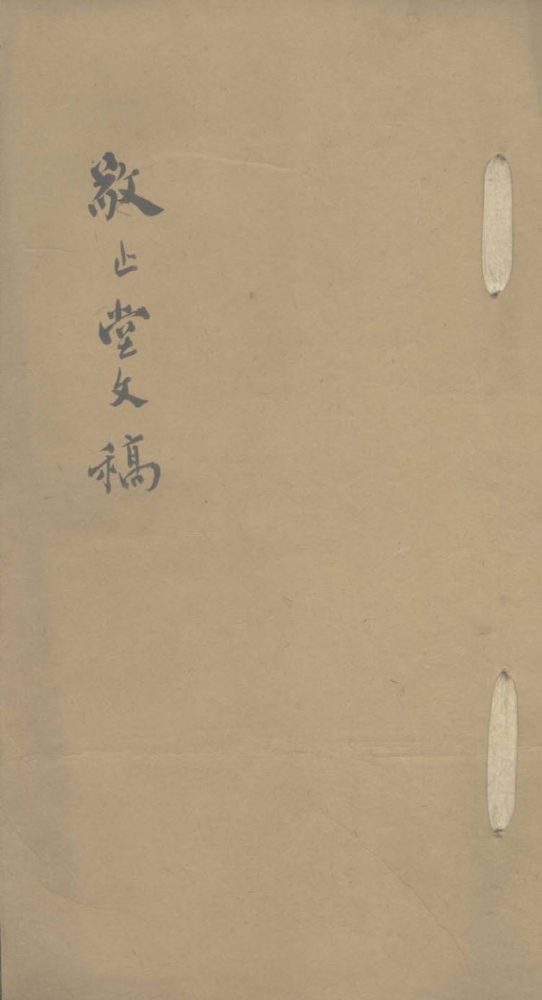 敬止堂文稿